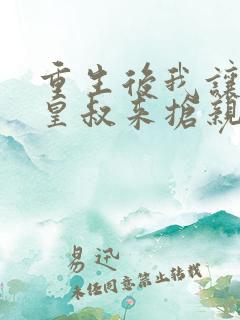 重生後我讓
皇叔来搶親
易迅
未经同意禁止转载